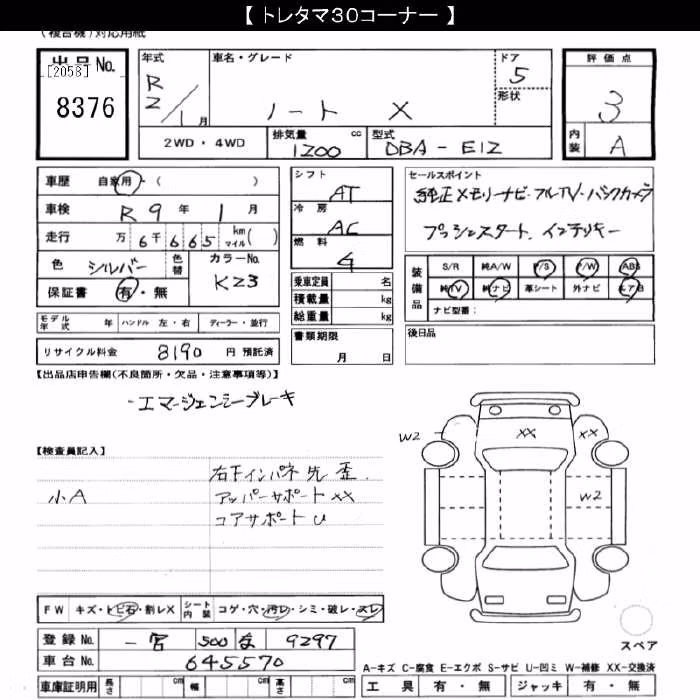 【 トレタマ30コーナー 】
(複合機)対応用紙
出品 No.
[2058]
8376
年式
R 2/1月
車名・グレード
ノート X
ドア
5
形状
評価点
3
内装
A
2WD・4WD
排気量 cc
1200
型式
DBA-E12
車歴 自家用・( )
車検 R9年 1月
走行 万 6千665 km マイル( )
色 シルバー 色替
カラーNo. K23
保証書 有・無
シフト AT
冷房 AC
燃料 4
乗車定員 名
積載量 kg
総重量 kg
書類期限
月 日
セールスポイント
純正メモリーナビ・フルTV・バックカメラ
プッシュスタート、インテリキー
装備品
S/R 純A/W P/S P/W ABS
純TV 純ナビ 革シート 外ナビ エアB
ナビ型番:
モデル年式 年 ハンドル 左・右 ディーラー・並行
後日品
リサイクル料金 8190 円 預託済
【出品店申告欄(不良箇所・欠品・注意事項等)】
・エマージェンシーブレーキ
【検査員記入】
小A
右下インパネ先 歪
アッパーサポート XX
コアサポート U
W2
XX
XX
W2
FW キズ・トビ石・割レX シート内装 コゲ・穴・汚レ・シミ・破レ・スレ
登録 No. 一宮 500 9297
車台 No. 645570
車庫証明用 長さ cm 幅 cm 高さ cm
スペア
A-キズ C-腐食 E-エクボ S-サビ U-凹ミ W-補修 XX-交換済
工具 有・無 ジャッキ 有・無